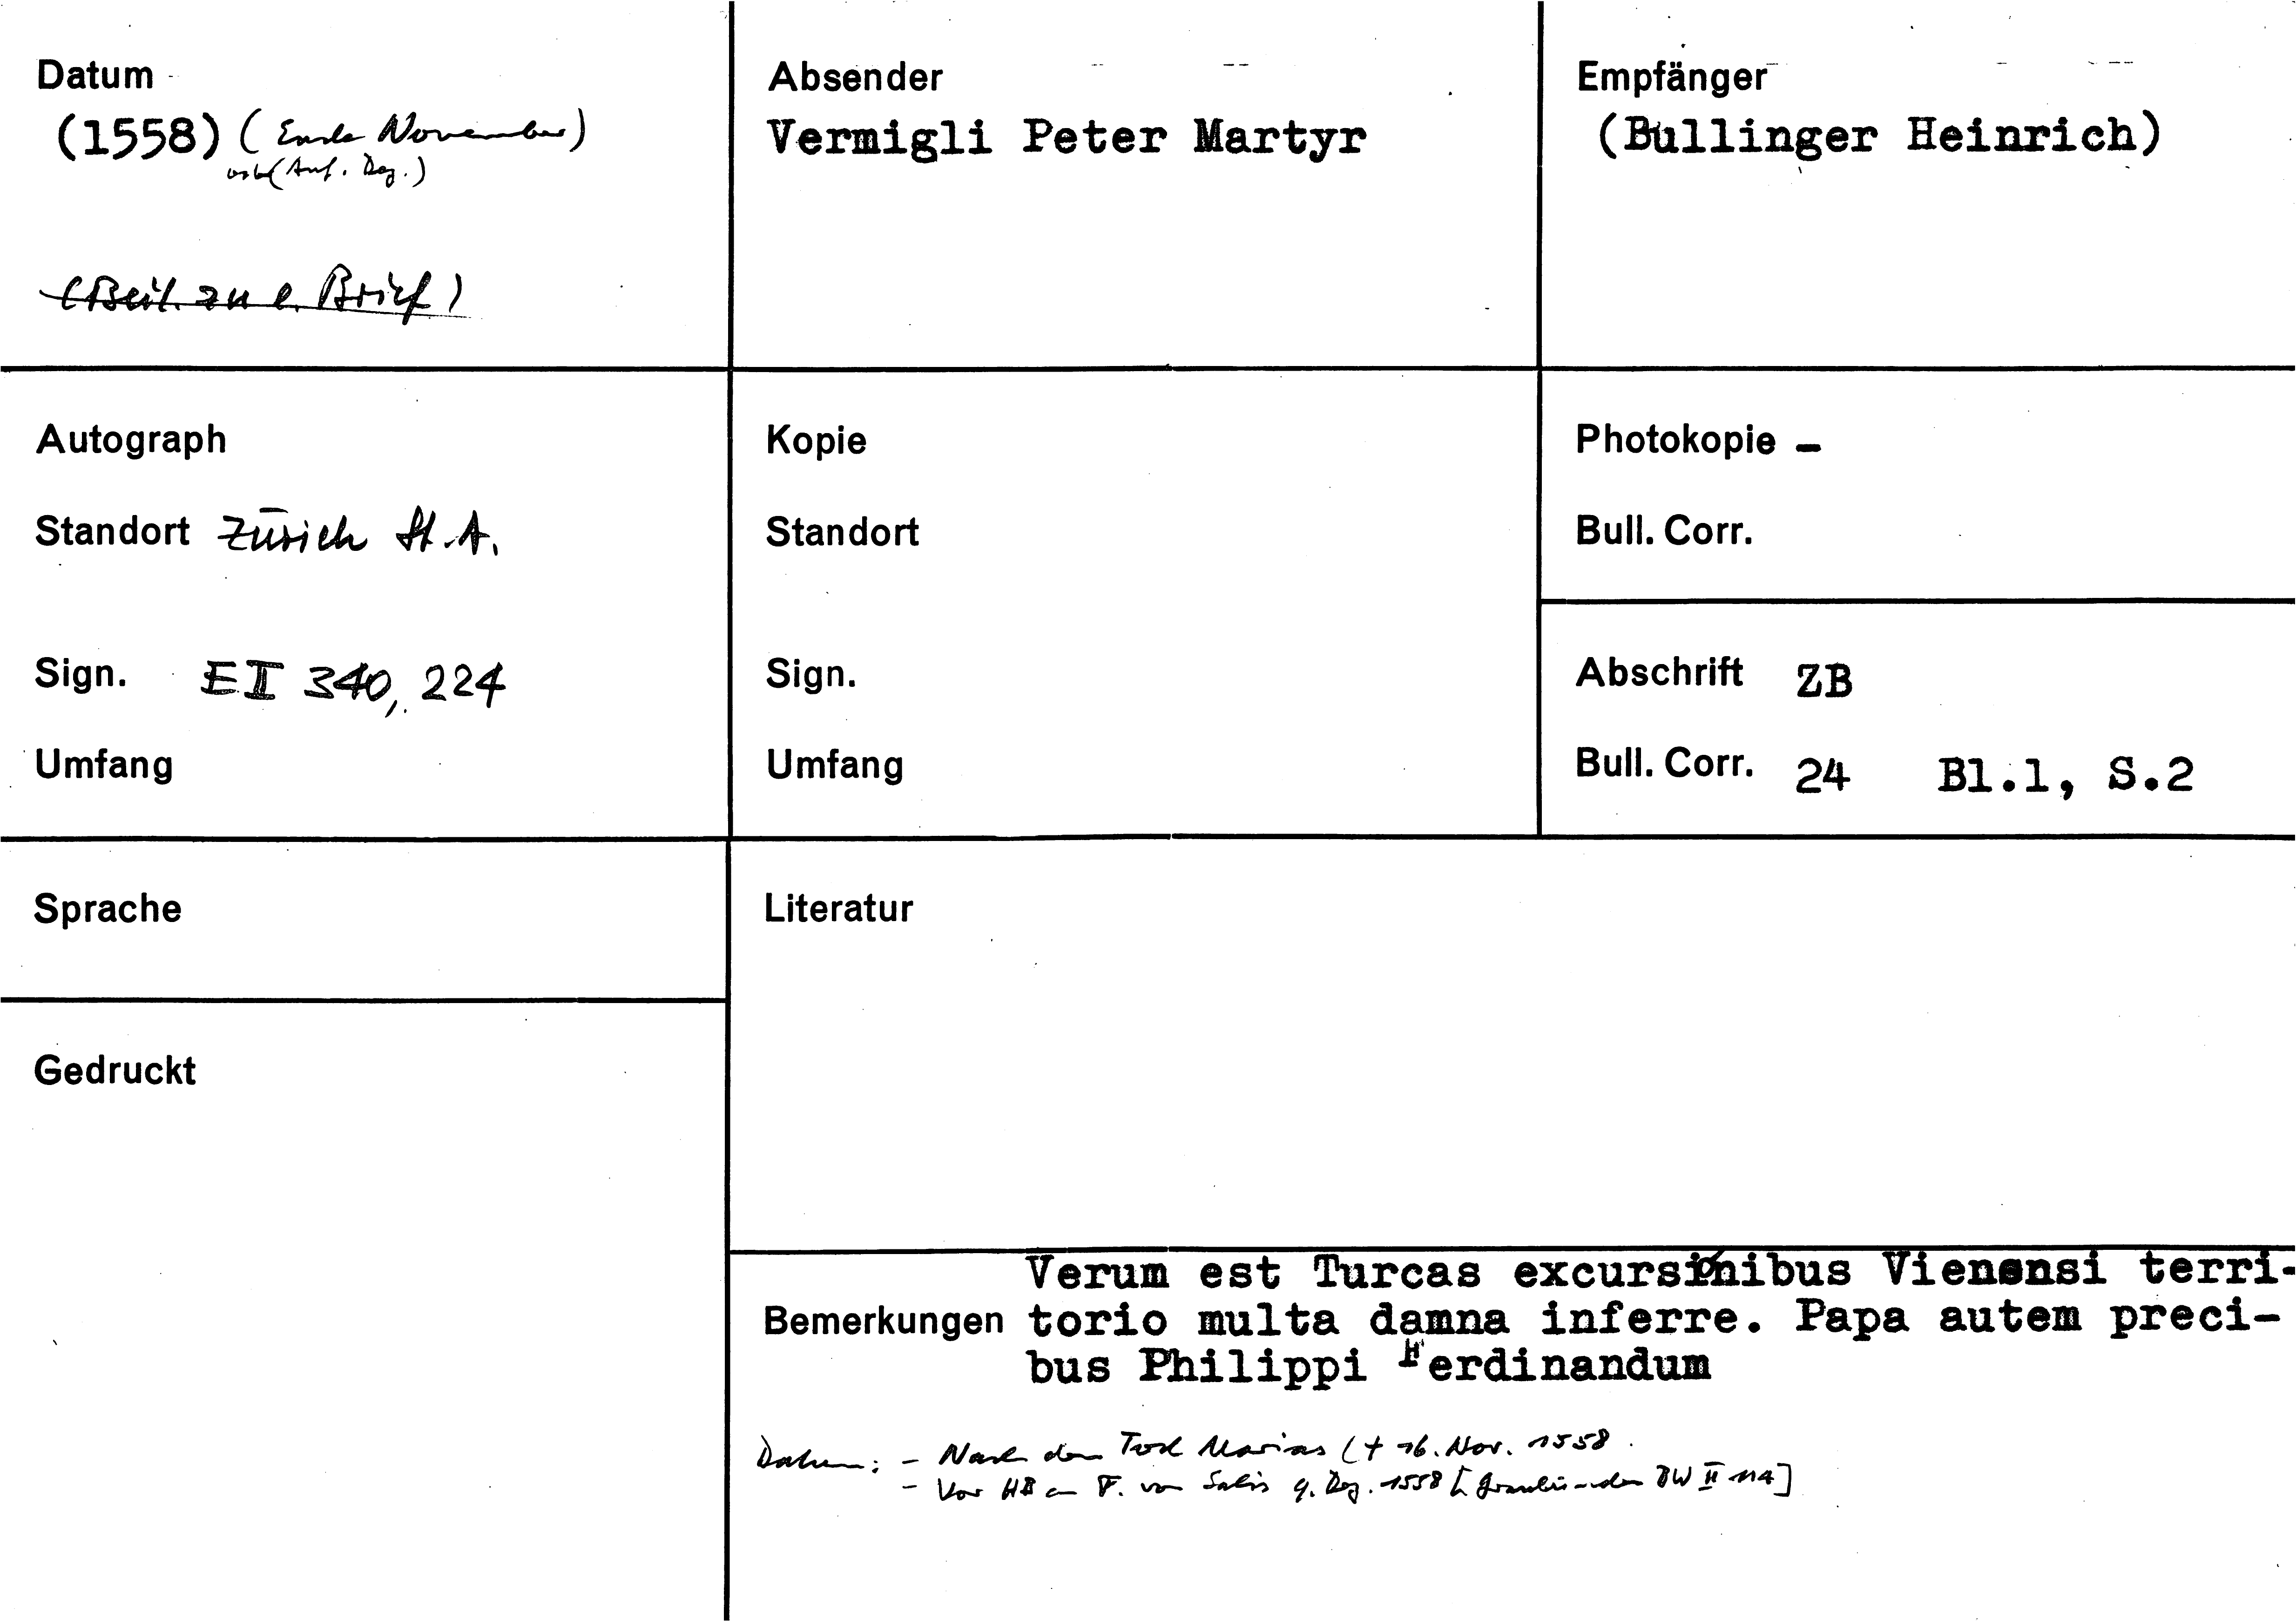 Datum
(1558) (Ende November)
oder (Anf. Dez.)
(Beil. zu e. Brief)
Absender
Vermigli Peter Martyr
Empfänger
(Bullinger Heinrich)
Autograph
Standort Zürich St.A.
Sign. E II 340, 224
Umfang
Kopie
Standort
Sign.
Umfang
Photokopie -
Bull. Corr.
Abschrift ZB
Bull. Corr. 24 Bl.1, S.2
Sprache
Gedruckt
Literatur
Verum est Turcas excursionibus Vienensi terri-
Bemerkungen torio multa damna inferre. Papa autem preci-
bus Philippi Ferdinandum
Datum: - Nach dem Tod Marias († 16. Nov. 1558
- Vor HB an F. von Salis 9. Dez. 1558 [Graubünden BW II 114]